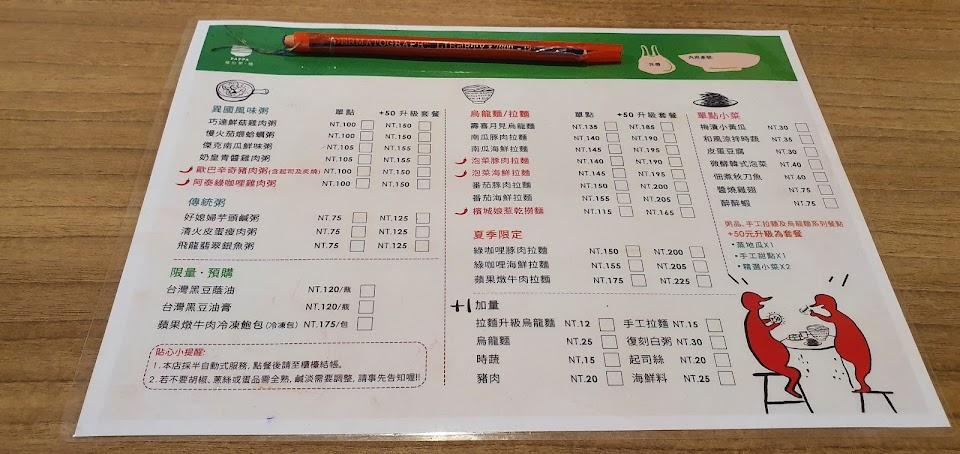 DERMATOGRAPH
PAPPA
外帶
內用桌號
異國風味粥 單點 +50 升級套餐
巧達鮮菇雞肉粥 NT.100 NT.150
慢火茄燜蛤蠣粥 NT.100 NT.150
傑克南瓜鮮味粥 NT.105 NT.155
奶皇青醬雞肉粥 NT.105 NT.155
歐巴辛奇豬肉粥(含起司及炙燒) NT.100 NT.150
阿泰綠咖哩雞肉粥 NT.100 NT.150
傳統粥
好媳婦芋頭鹹粥 NT.75 NT.125
清火皮蛋瘦肉粥 NT.75 NT.125
飛龍翡翠銀魚粥 NT.75 NT.125
限量·預購
台灣黑豆蔭油 NT.120/瓶
台灣黑豆油膏 NT.120/瓶
蘋果燉牛肉冷凍飽包(冷凍包) NT.175/包
貼心小提醒:
1. 本店採半自動式服務, 點餐後請至櫃檯結帳。
2. 若不要胡椒、蔥絲或蛋品需全熟, 鹹淡需要調整, 請事先告知喔!!
烏龍麵/拉麵 單點 +50 升級套餐
壽喜月見烏龍麵 NT.135 NT.185
南瓜豚肉拉麵 NT.140 NT.190
南瓜海鮮拉麵 NT.145 NT.195
泡菜豚肉拉麵 NT.140 NT.190
泡菜海鮮拉麵 NT.145 NT.195
番茄豚肉拉麵 NT.150 NT.200
番茄海鮮拉麵 NT.155 NT.205
檳城娘惹乾撈麵 NT.115 NT.165
夏季限定
綠咖哩豚肉拉麵 NT.150 NT.200
綠咖哩海鮮拉麵 NT.155 NT.205
蘋果燉牛肉拉麵 NT.175 NT.225
+1 加量
拉麵升級烏龍麵 NT.12 手工拉麵 NT.15
烏龍麵 NT.25 復刻白粥 NT.30
時蔬 NT.15 起司絲 NT.20
豬肉 NT.20 海鮮料 NT.25
單點小菜
梅漬小黃瓜 NT.30
和風涼拌時蔬 NT.35
皮蛋豆腐 NT.30
微醉韓式泡菜 NT.40
佃煮秋刀魚 NT.60
醬燒雞翅 NT.75
醉醉蝦 NT.75
粥品、手工拉麵及烏龍麵系列餐點
+50元升級為套餐
• 蒸地瓜X1
• 手工甜點X1
• 精選小菜X2